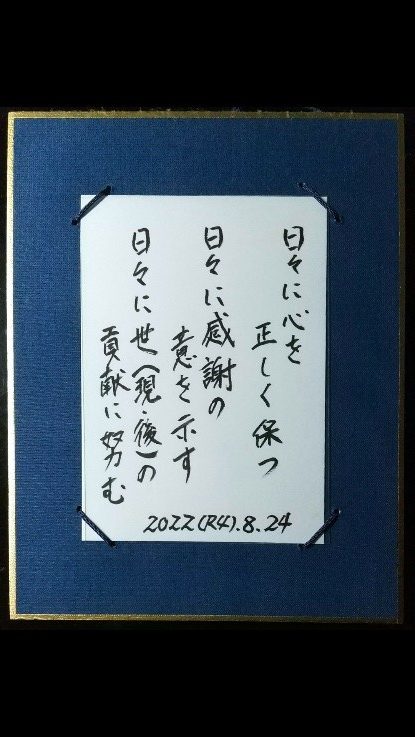 日々に心を
正しく保つ
日々に感謝の
意を示す
日々に世(現・後)の
貢献に努む
2022(R4).8.24